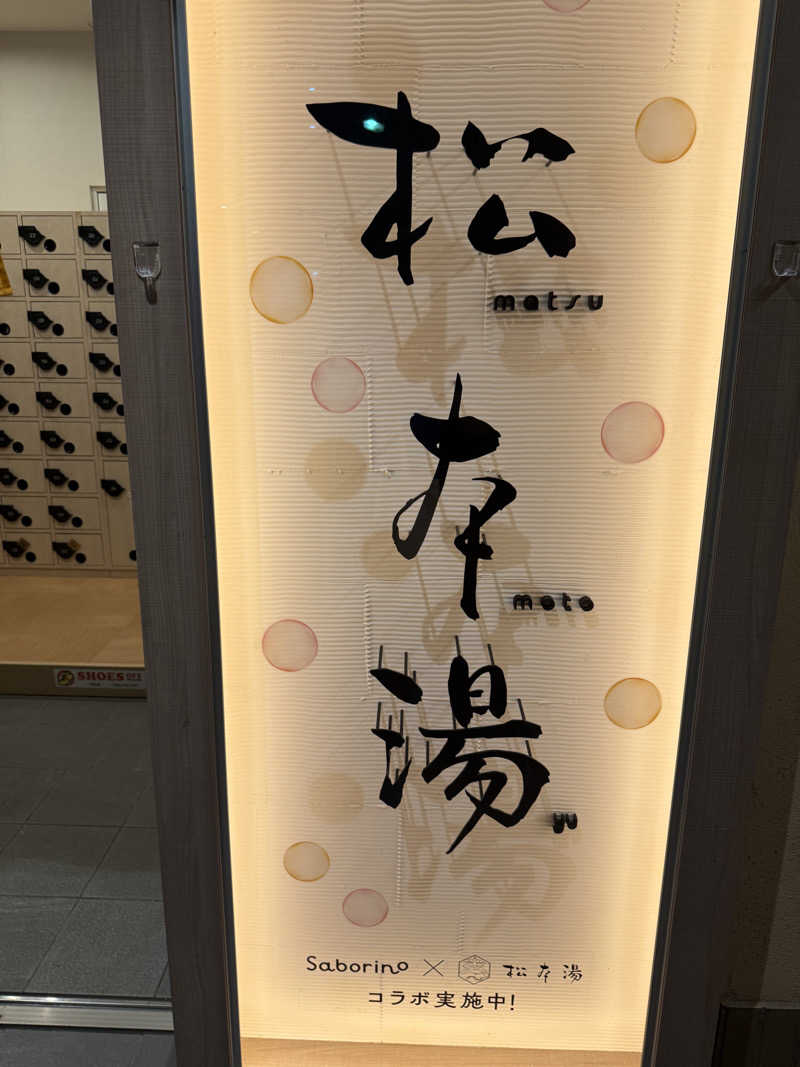 松
matsu
本
moto
湯
yu
Saborino × 松本湯
コラボ実施中!
SHOES